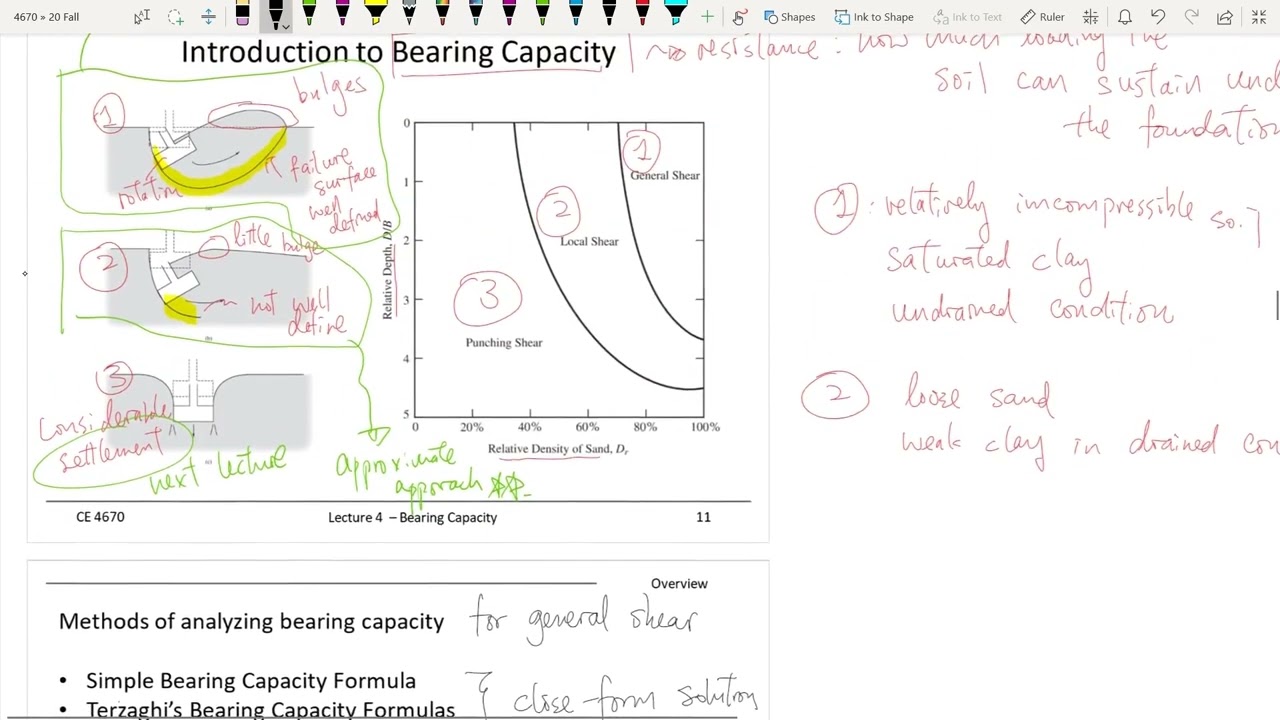 4670 » 20 Fall
Shapes
Ink to Shape
Ink to Text
Ruler
Introduction to Bearing Capacity
resistance : how much loading the
soil can sustain
the foundation
1
bulges
rotation
failure
surface
well
defined
2
little bulge
not well
define
3
Considerable
settlement
next lecture
approximate
apporach
0
1
2
3
4
5
Relative Depth, D/B
0
20%
40%
60%
80%
100%
Relative Density of Sand, Dr
1
General Shear
2
Local Shear
3
Punching Shear
1 : relatively incompressible soil
saturated clay
undrained condition
2 loose sand
weak clay in drained con
CE 4670
Lecture 4 – Bearing Capacity
11
Overview
Methods of analyzing bearing capacity
for general shear
• Simple Bearing Capacity Formula
• Terzaghi's Bearing Capacity Formulas
close-form solution